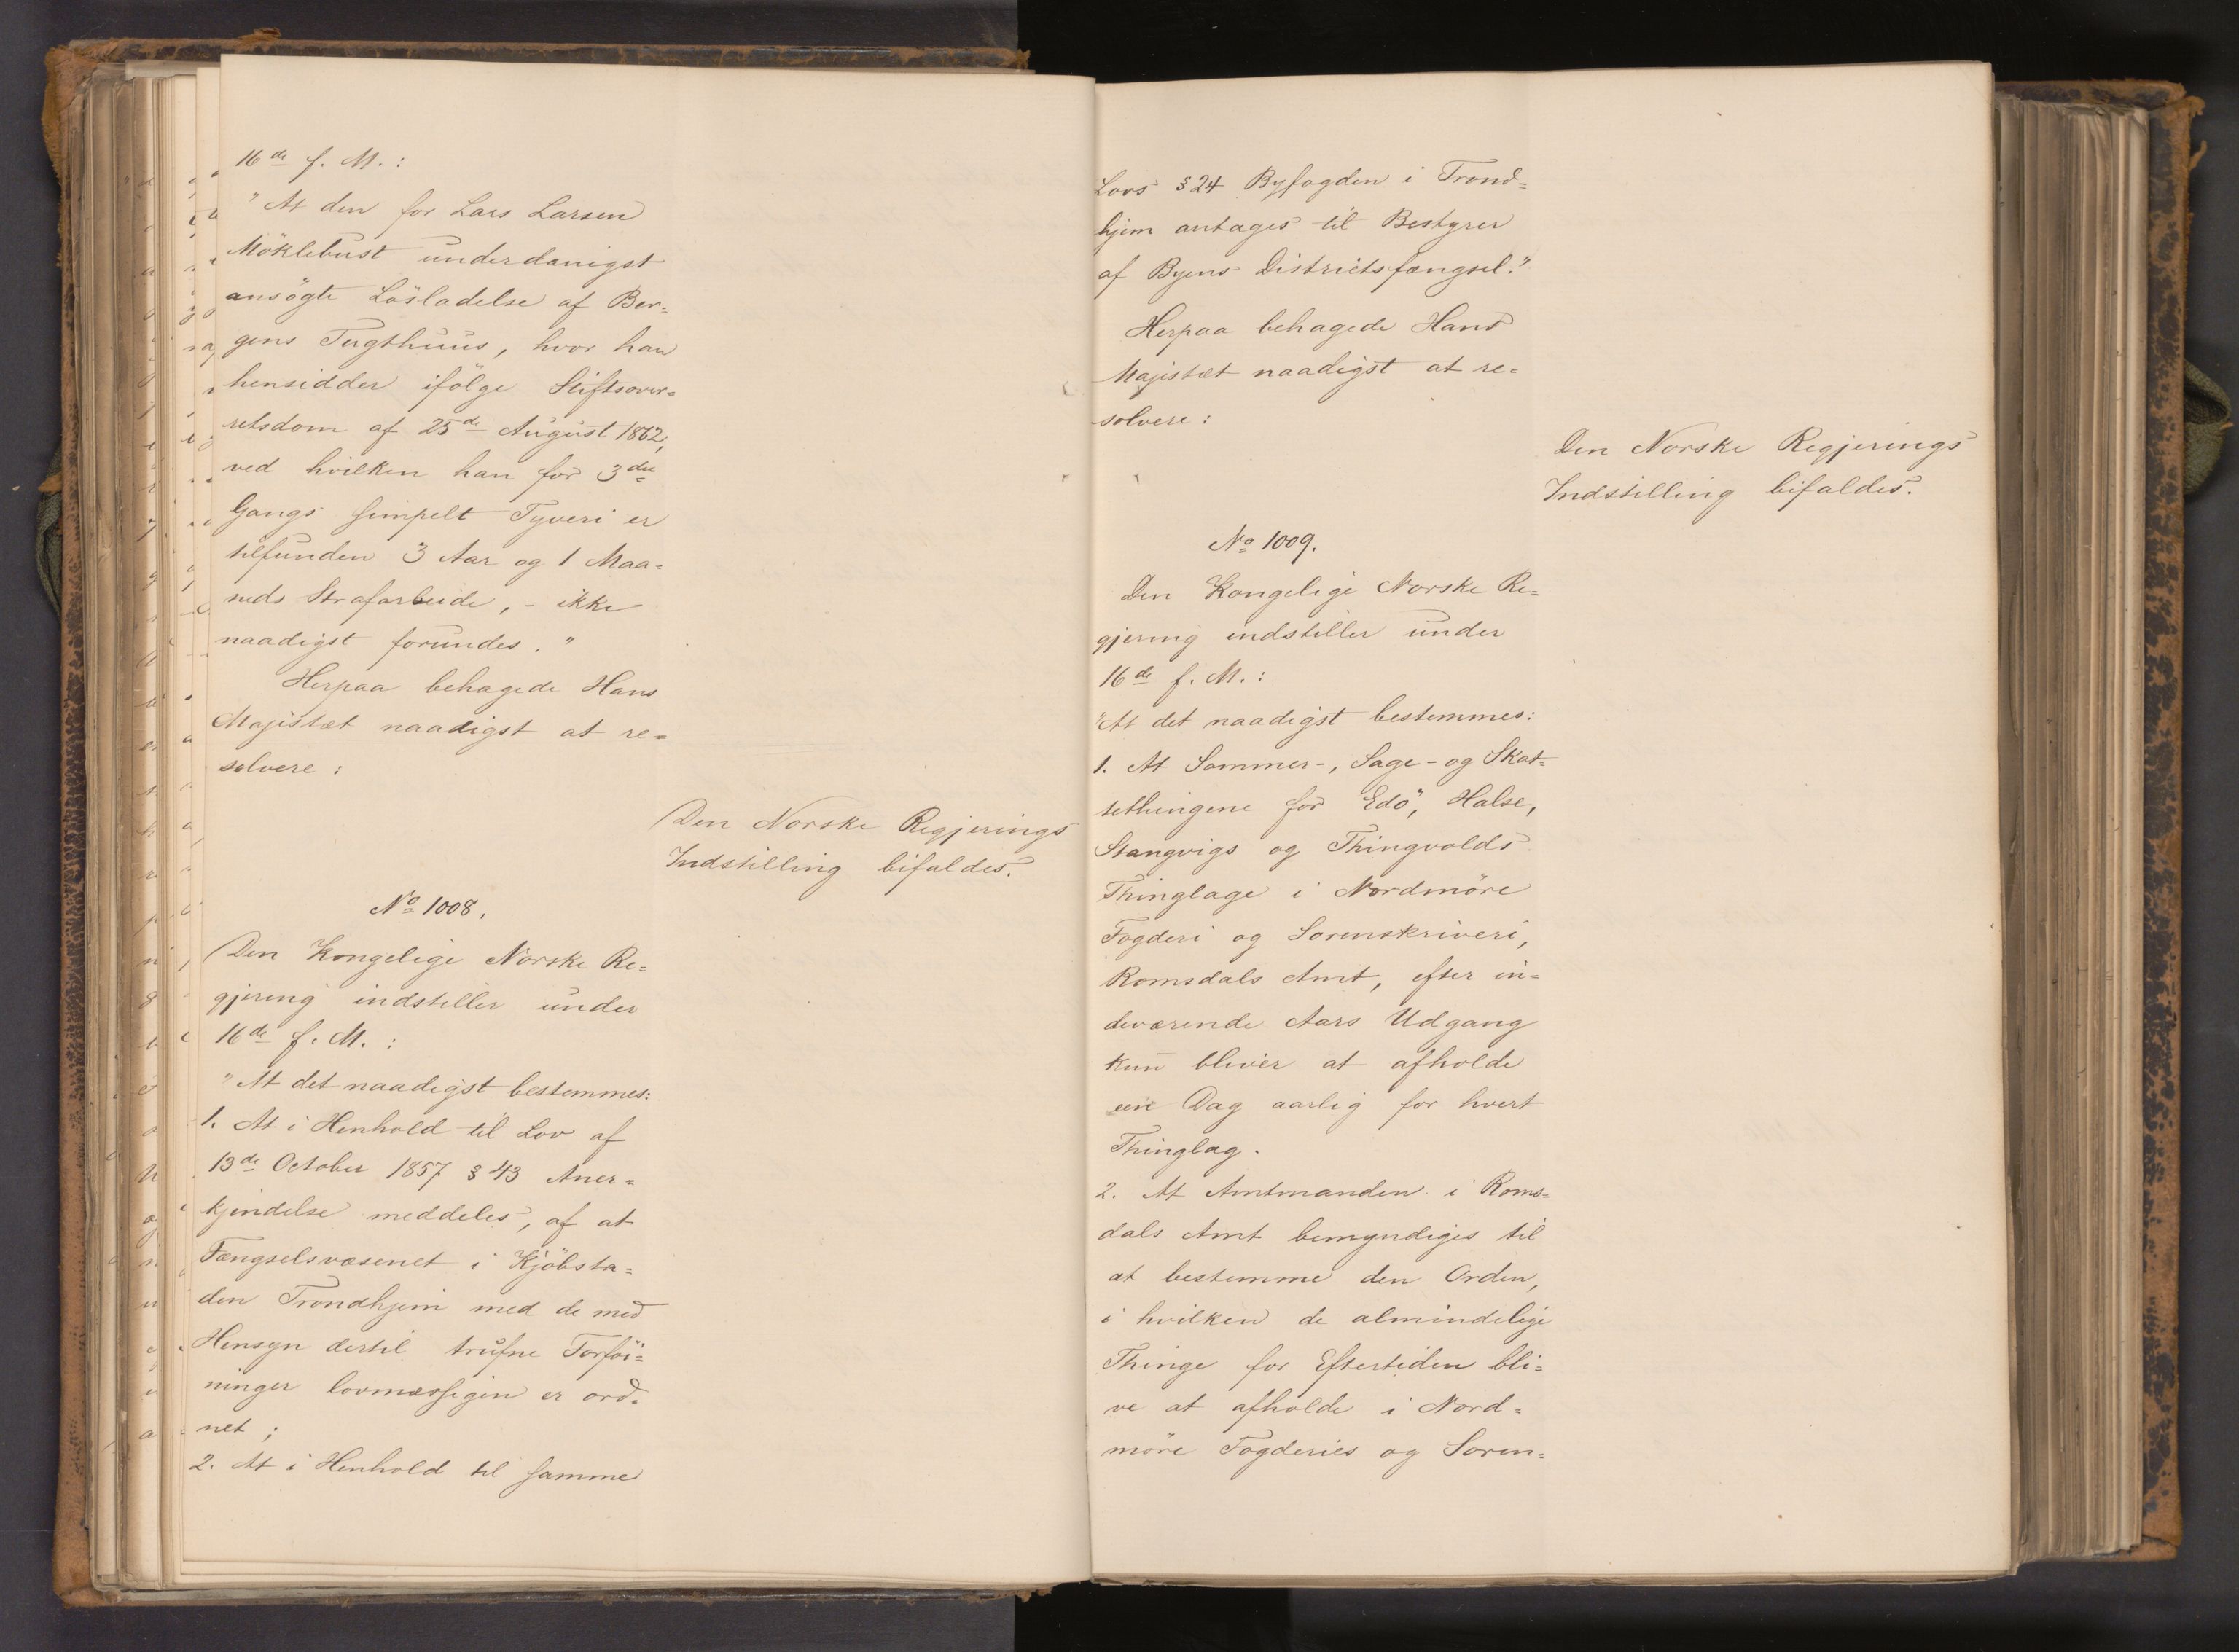 16de f. M.:
"At den for Lars Larsen
Möklebust underdanigst
ansögte Lösladelse af Ber=
gens Tugthuus, hvor han
hensidder ifölge Stiftsover=
retsdom af 25de August 1862,
ved hvilken han for 3die
Gangs simpelt Tyveri er
tilfunden 3 Aar og 1 Maa=
neds Strafarbeide, - ikke
naadigst forundes."
Herpaa behagede Hans
Majestæt naadigst at re=
solvere:
Den Norske Regjerings
Indstilling bifaldes.
No 1008.
Den Kongelige Norske Re=
gjering indstiller under
16de f. M.:
"At det naadigst bestemmes:
1. At i Henhold til Lov af
13de October 1857 § 43 Aner=
kjendelse meddeles, af at
Fængselsvæsenet i Kjöbsta=
den Trondhjem med de med
Hensyn dertil trufne Forföi=
ninger lovmæssigen er ord=
net;
2. At i Henhold til samme
Lovs § 24 Byfogden i Trond=
hjem antages til Bestyrer
af Byens Districtsfængsel."
Herpaa behagede Hans
Majestæt naadigst at re=
solvere:
Den Norske Regjerings
Indstilling bifaldes.
No 1009.
Den Kongelige Norske Re=
gjering indstiller under
16de f. M.:
"At det naadigst bestemmes:
1. At Sommer-, Sage- og Skat=
tethingene for Edö, Halse,
Stangvigs og Thingvolds
Thinglage i Nordmöre
Fogderi og Sorenskriveri,
Romsdals Amt, efter in=
deværende Aars Udgang
kun bliver at afholde
een Dag aarlig for hvert
Thinglag.
2. At Amtmanden i Roms=
dals Amt bemyndiges til
at bestemme den Orden,
i hvilken de almindelige
Thinge for Eftertiden bli=
ve at afholde i Nord=
möre Fogderies og Soren=